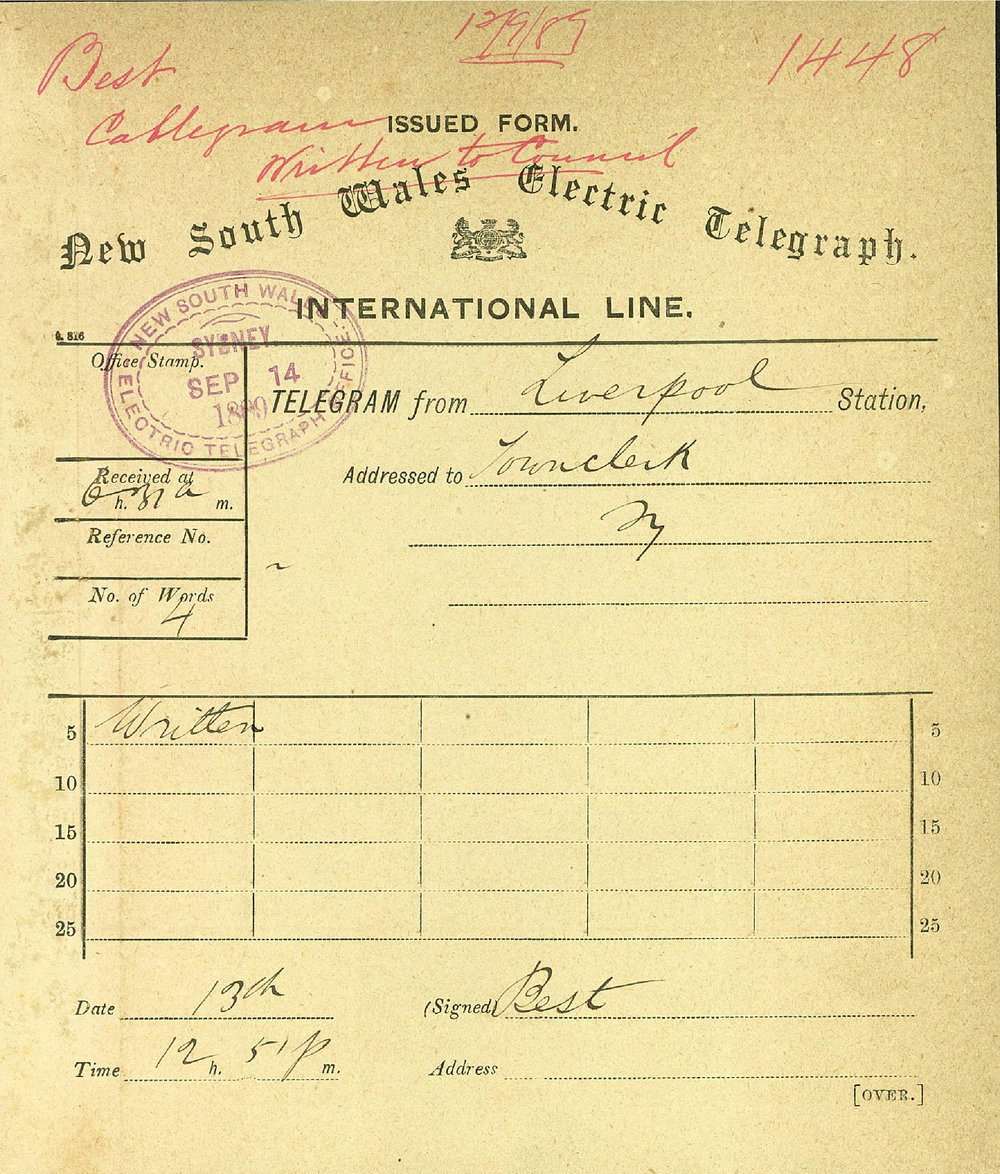 12/9/89
Best
1448
Cablegram
ISSUED FORM.
Written to Council
New South Wales Electric Telegraph.
INTERNATIONAL LINE.
G. 316
NEW SOUTH WALES
SYDNEY.
SEP 14
1889
ELECTRIC TELEGRAPH OFFICE
Office Stamp.
TELEGRAM from Liverpool Station,
Addressed to Townclerk
Sy
Received at
6 h. 31 a m.
Reference No.
No. of Words
4
5 Written 5
10 10
15 15
20 20
25 25
Date 13th (Signed) Best
Time 12 h. 51 p m. Address
[OVER.]